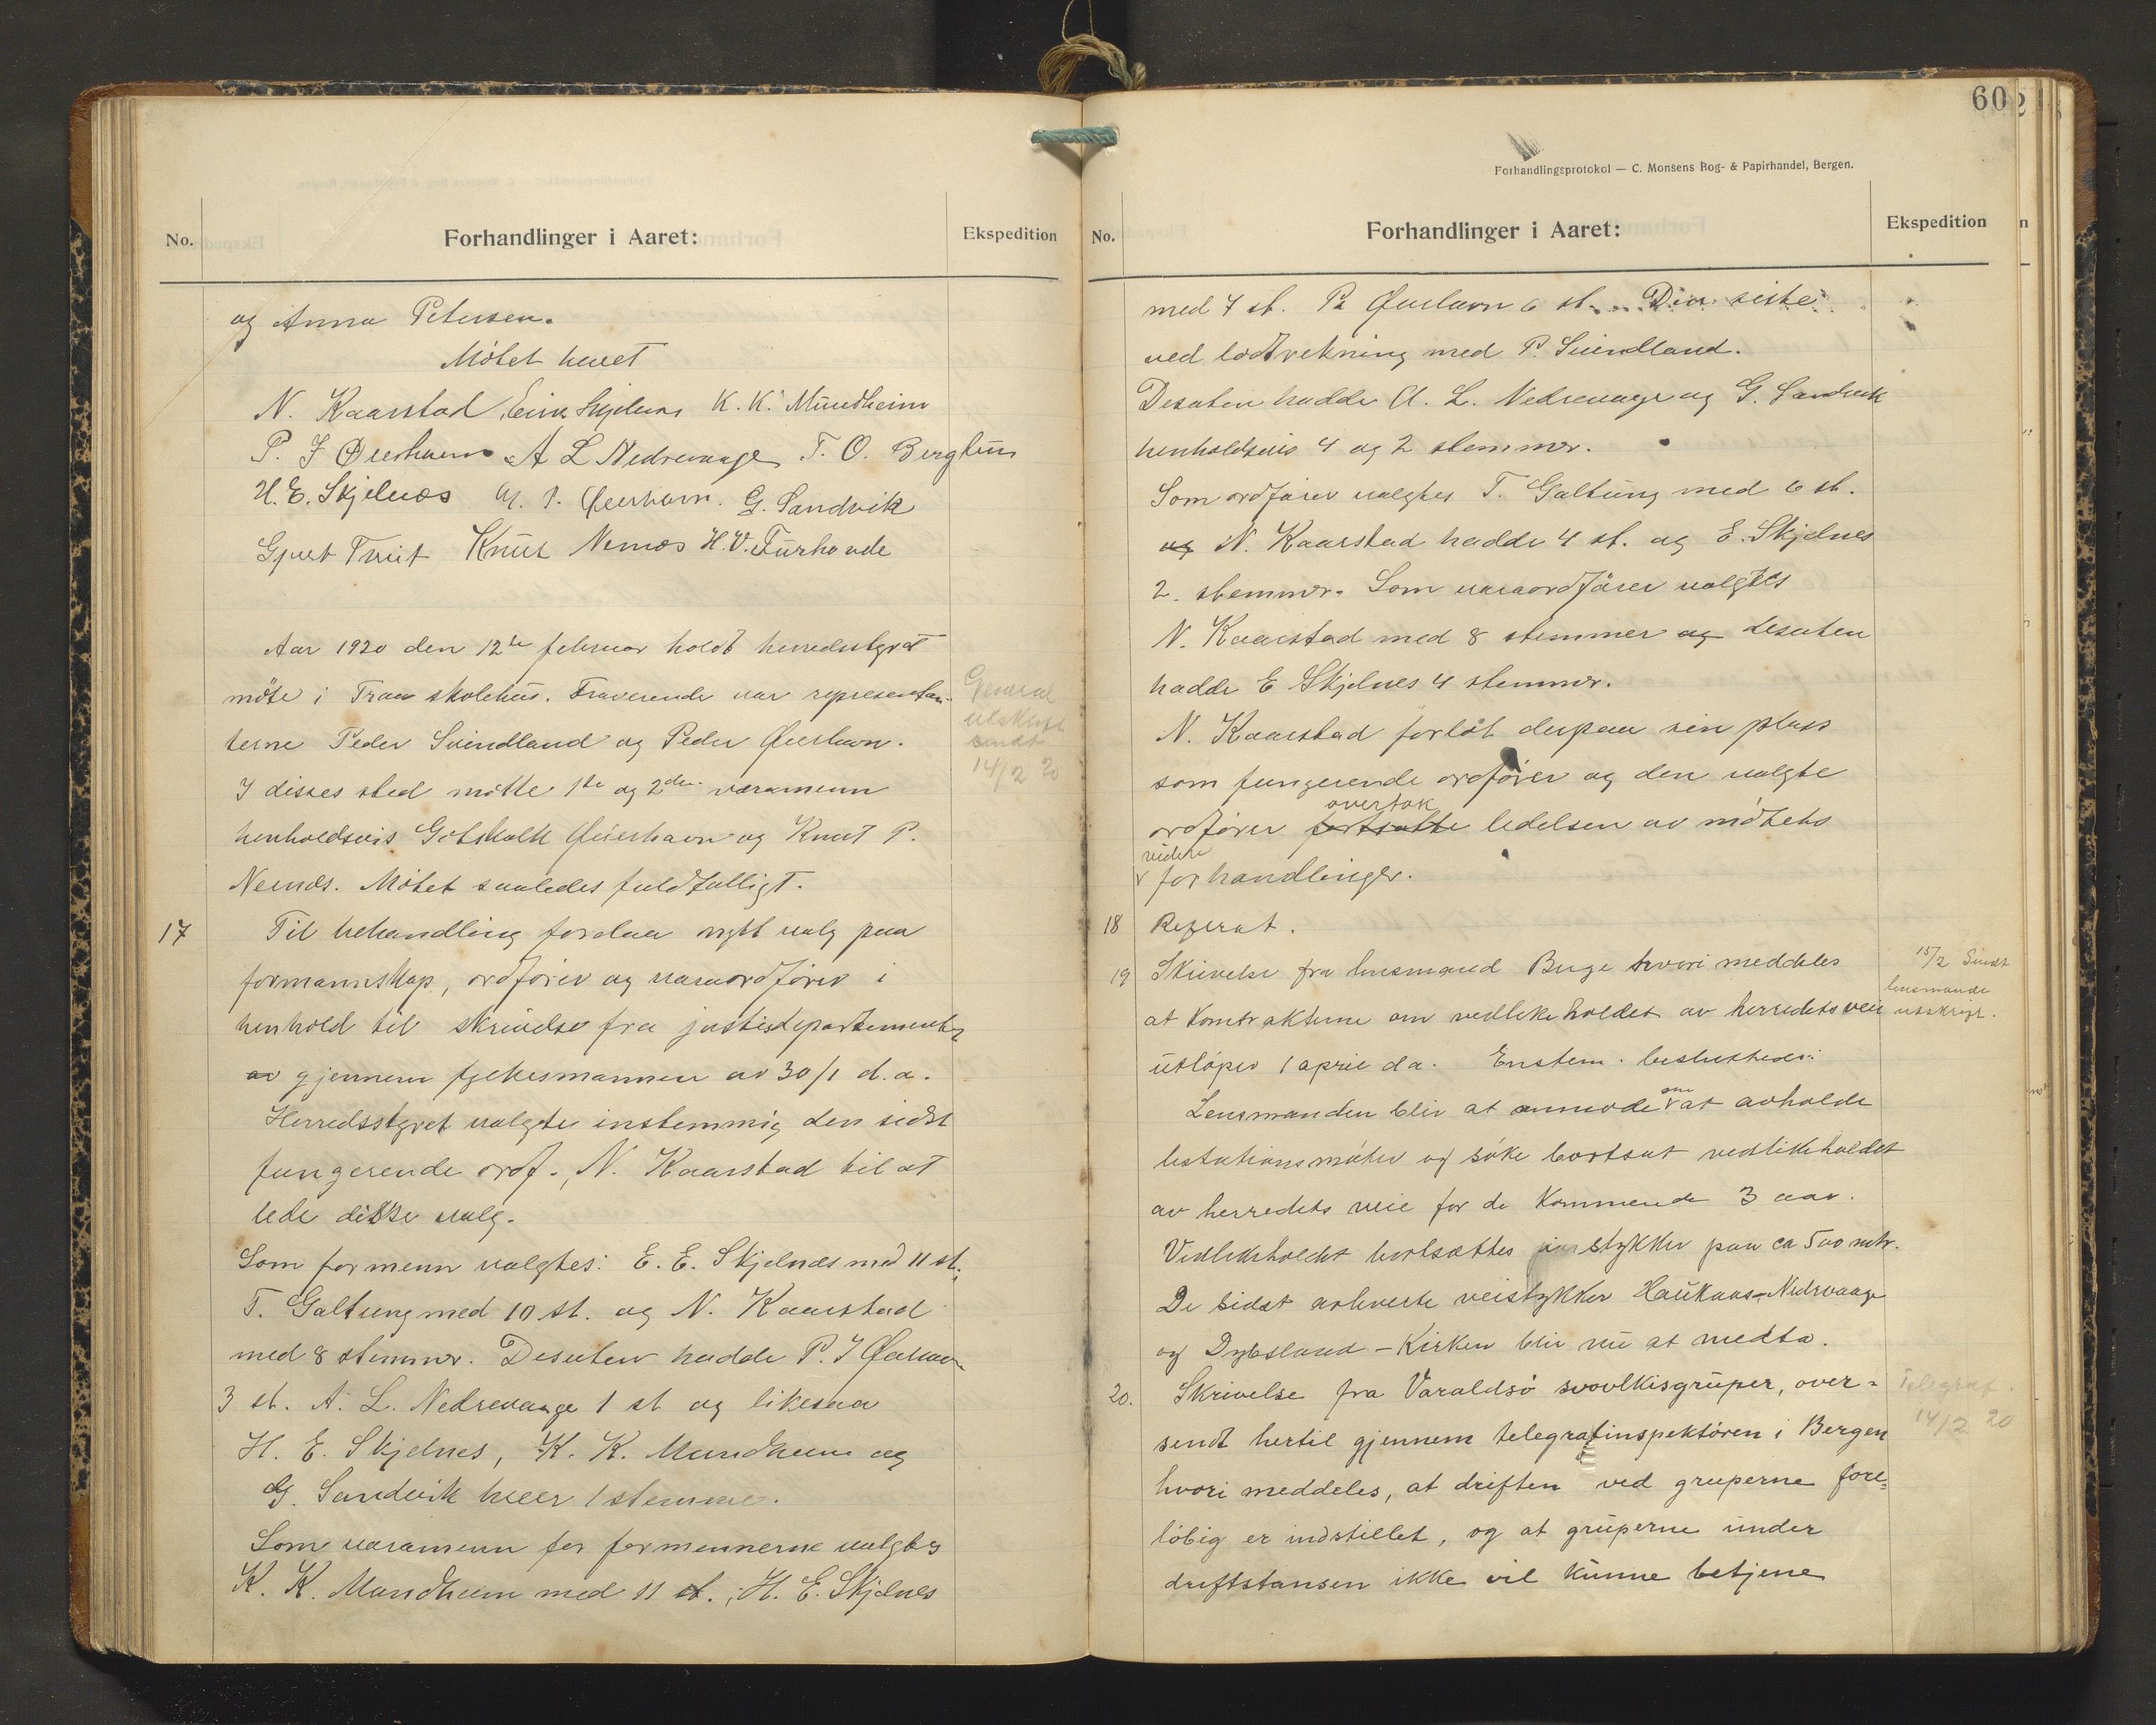 No.
Forhandlinger i Aaret:
Ekspedition
og Anna Petersen.
Møtet hevet
N. Kaarstad Eirik Skjelnes K. K. Mundheim
P. J Øierhavn A L Nedrevaage T. O. Berghun
H. E. Skjelnæs G. P. Øierhavn. G. Sandvik
Gjert Tveit Knut Nernæs H. V. Furhovde
Aar 1920 den 12te februar holdt herredstyret
møte i Traa skolehus. Fraverende var representan-
terne Peder Svindland og Peder Øierhavn.
I disses sted møtte 1ste og 2den varamenn
henholdsvis Gotskalk Øierhavn og Knut P.
Nernæs. Møtet saaledes fuldtalligt.
General
utskrift
sendt
14/2 20
17 Til behandling forelaa nytt valg paa
formannskap, ordfører og varaordfører i
henhold til skrivelse fra justisdepartementet
av gjennem fylkesmannen av 30/1 d.a.
Herredsstyret valgte instemmig den sidst
fungerende ordf., N. Kaarstad til at
lede disse valg.
Som formenn valgtes: E. E. Skjelnæs med 11 st.,
T. Galtung med 10 st. og N. Kaarstad
med 8 stemmer. Desuten hadde P. J Øierhavn
3 st. A. L. Nedrevaage 1 st og likesaa
H. E. Skjelnes, K. K. Mundheim og
G. Sandvik hver 1 stemme.
Som varamenn for formennerne valgtes
K. K. Mundheim med 11 st., H. E. Skjelnes
60
Forhandlingsprotokol — C. Monsens Bog- & Papirhandel, Bergen.
No.
Forhandlinger i Aaret:
Ekspedition
med 7 st. P. Øierhavn 6 st. Den siste
ved lodtrekning med P. Svindland.
Desuten hadde A. L. Nedrevaage og G. Sandvik
henholdsvis 4 og 2 stemmer.
Som ordfører valgtes T. Galtung med 6 st.
og N. Kaarstad hadde 4 st. og E. Skjelnes
2. stemmer. Som varaordfører valgtes
N. Kaarstad med 8 stemmer og desuten
hadde E Skjelnes 4 stemmer.
N. Kaarstad forlot derpaa sin plass
som fungerende ordfører og den valgte
overtok
ordfører fortsatte ledelsen av møtets
videre
forhandlinger.
18 Referat.
19 Skrivelse fra lensmand Buge hvori meddeles
at Kontrakterne om vedlikeholdet av herredets veie
utløper 1 april d a. Enstem. besluttedes:
15/2 Sendt
lensmande
utskrift.
om
Lensmanden blir at anmode at avholde
lisitationsmøter og søke bortsat vedlikeholdet
av herredets veie for de Kommende 3 aar.
Vedlikeholdet bortsættes i stykker paa ca 500 mtr.
De sidst avleverte veistykker Haukaas-Nedrevaage
og Dybsland - Kirken blir nu at medta.
20. Skrivelse fra Varaldsø svovlkisgruper, over-
sendt hertil gjennem telegrafinspektøren i Bergen
hvori meddeles, at driften ved gruperne fore-
løbig er indstillet, og at gruperne under
driftstansen ikke vil kunne betjene
Telegraf
14/2 20